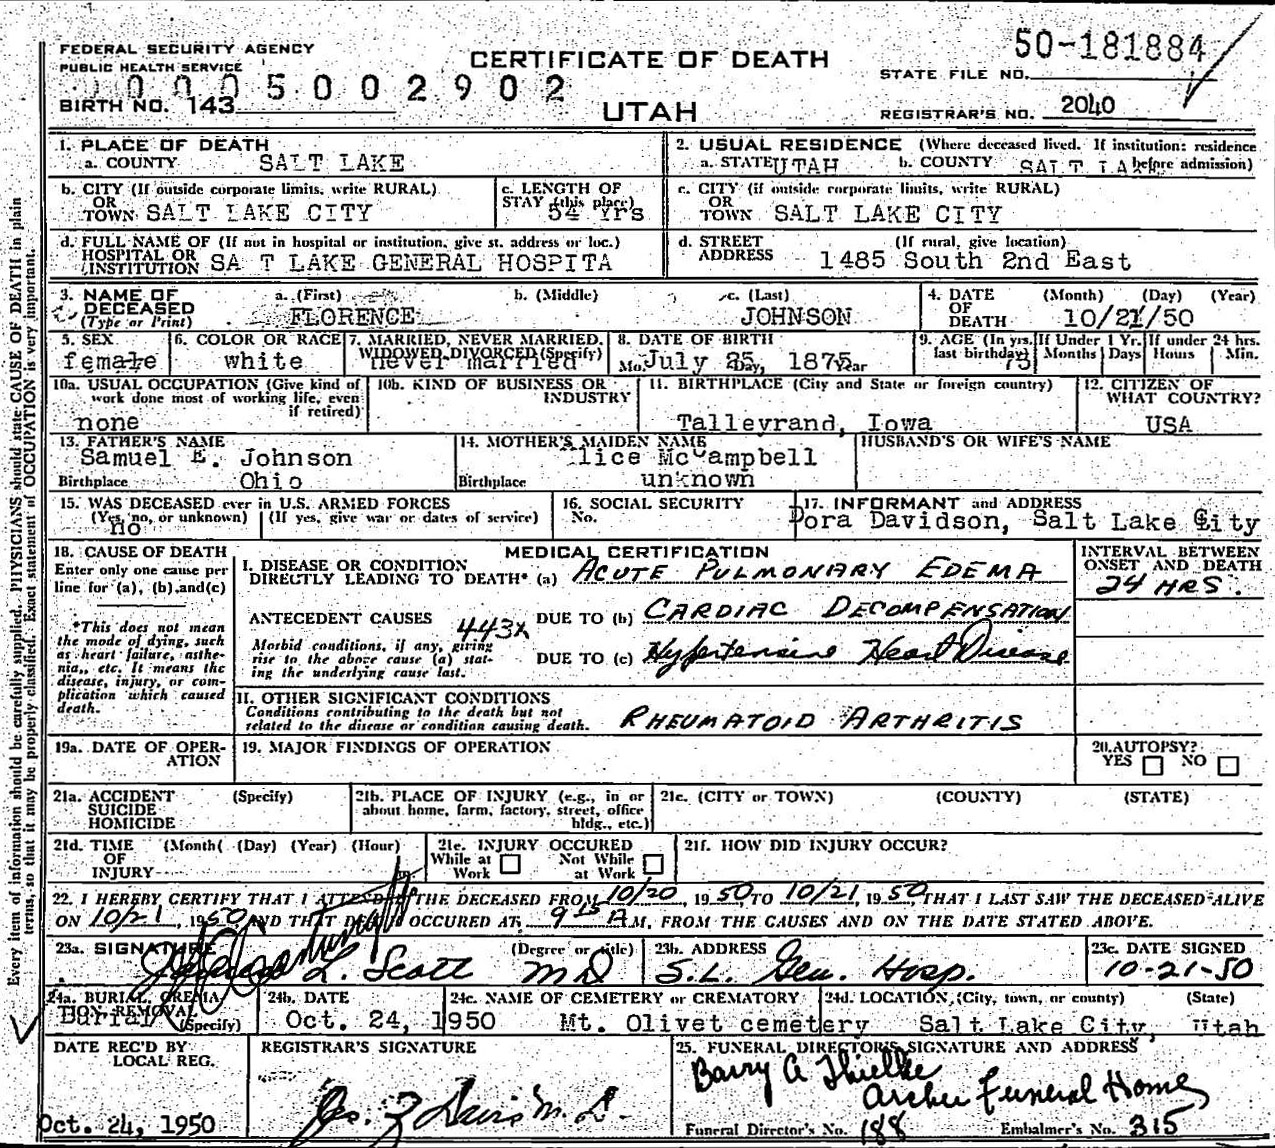 FEDERAL SECURITY AGENCY
PUBLIC HEALTH SERVICE
CERTIFICATE OF DEATH
50-181884
STATE FILE NO.
0005002902
BIRTH NO. 143
UTAH
REGISTRAR'S NO. 2040
1. PLACE OF DEATH
a. COUNTY SALT LAKE
2. USUAL RESIDENCE (Where deceased lived. If institution: residence before admission)
a. STATE UTAH b. COUNTY SALT LAKE
b. CITY (If outside corporate limits, write RURAL)
OR
TOWN SALT LAKE CITY
c. LENGTH OF
STAY (this place)
54 Yrs
c. CITY (if outside corporate limits, write RURAL)
OR
TOWN SALT LAKE CITY
d. FULL NAME OF (If not in hospital or institution, give st. address or loc.)
HOSPITAL OR
INSTITUTION SA T LAKE GENERAL HOSPITA
d. STREET (If rural, give location)
ADDRESS 1485 South 2nd East
3. NAME OF DECEASED
(Type or Print)
a. (First) b. (Middle) c. (Last)
FLORENCE JOHNSON
4. DATE OF DEATH (Month) (Day) (Year)
10/21/50
5. SEX
female
6. COLOR OR RACE
white
7. MARRIED, NEVER MARRIED,
WIDOWED, DIVORCED (Specify)
never married
8. DATE OF BIRTH
Mo. July 25, Day, 1875 Year
9. AGE (In yrs. last birthday) 75
If Under 1 Yr. Months Days
If under 24 hrs. Hours Min.
10a. USUAL OCCUPATION (Give kind of
work done most of working life, even
if retired)
none
10b. KIND OF BUSINESS OR
INDUSTRY
11. BIRTHPLACE (City and State or foreign country)
Talleyrand, Iowa
12. CITIZEN OF
WHAT COUNTRY?
USA
13. FATHER'S NAME
Samuel E. Johnson
Birthplace Ohio
14. MOTHER'S MAIDEN NAME
lice McCampbell
Birthplace unknown
HUSBAND'S OR WIFE'S NAME
15. WAS DECEASED ever in U.S. ARMED FORCES
(Yes, no, or unknown) (If yes, give war or dates of service)
no
16. SOCIAL SECURITY
No.
17. INFORMANT and ADDRESS
Dora Davidson, Salt Lake City
18. CAUSE OF DEATH
Enter only one cause per
line for (a), (b), and (c)
*This does not mean
the mode of dying, such
as heart failure, asthe-
nia, etc. It means the
disease, injury, or com-
plication which caused
death.
MEDICAL CERTIFICATION
I. DISEASE OR CONDITION
DIRECTLY LEADING TO DEATH* (a) ACUTE PULMONARY EDEMA
INTERVAL BETWEEN
ONSET AND DEATH
24 HRS.
ANTECEDENT CAUSES DUE TO (b) CARDIAC DECOMPENSATION
443X
Morbid conditions, if any, giving
rise to the above cause (a) stat-
ing the underlying cause last.
DUE TO (c) Hypertensive Heart Disease
II. OTHER SIGNIFICANT CONDITIONS
Conditions contributing to the death but not
related to the disease or condition causing death.
RHEUMATOID ARTHRITIS
19a. DATE OF OPER-
ATION
19. MAJOR FINDINGS OF OPERATION
20. AUTOPSY?
YES NO
21a. ACCIDENT (Specify)
SUICIDE
HOMICIDE
21b. PLACE OF INJURY (e.g., in or
about home, farm, factory, street, office
bldg., etc.)
21c. (CITY or TOWN) (COUNTY) (STATE)
21d. TIME (Month) (Day) (Year) (Hour)
OF
INJURY
21e. INJURY OCCURED
While at Work Not While at Work
21f. HOW DID INJURY OCCUR?
22. I HEREBY CERTIFY THAT I ATTENDED THE DECEASED FROM 10/20, 1950 TO 10/21, 1950, THAT I LAST SAW THE DECEASED ALIVE
ON 10/21, 1950 AND THAT DEATH OCCURED AT 9 15 A M, FROM THE CAUSES AND ON THE DATE STATED ABOVE.
23a. SIGNATURE (Degree or title)
L. Scott MD
23b. ADDRESS
S.L. Gen. Hosp.
23c. DATE SIGNED
10-21-50
24a. BURIAL, CREMA-
TION, REMOVAL
(Specify)
Burial
24b. DATE
Oct. 24, 1950
24c. NAME OF CEMETERY or CREMATORY
Mt. Olivet cemetery
24d. LOCATION (City, town, or county) (State)
Salt Lake City, Utah
DATE REC'D BY
LOCAL REG.
Oct. 24, 1950
REGISTRAR'S SIGNATURE
M. D.
25. FUNERAL DIRECTOR'S SIGNATURE AND ADDRESS
Barry A Thielke
Archer Funeral Home
Funeral Director's No. 188 Embalmer's No. 315
Every item of information should be carefully supplied. PHYSICIANS should state CAUSE OF DEATH in plain
terms, so that it may be properly classified. Exact statement of OCCUPATION is very important.